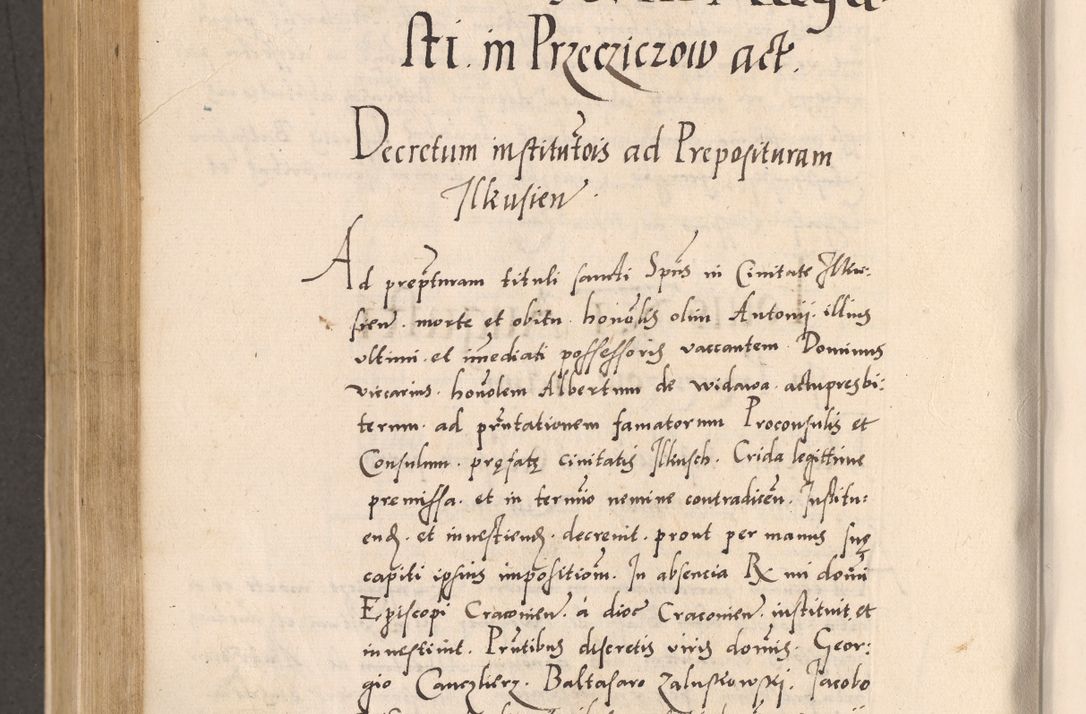 sti. in Przecziczow act.
Decretum institut͠ois ad Preposituram
Ilkusien̄.
Ad prep̄turam tituli sancti Sp̄us in Ciuitate Ilku:
sien̄. morte et obitu. hono͞lis olim Antonij. illius
vltimi. et im̄ediati possessoris vaccantem. Dominus
vicearius. hono͞lem Albertum de widawa. actupresbi:
terum. ad pn̄tationem famatorum Proconsulis et
Consulum. pręfatę ciuitatis Ilkusch. Crida legittime
premissa. et in termi͞o nemine contradicen̄. Institu:
end̄. et inuestiend̄. decreuit. prout per manus suę
capiti ipsius impositiom̄. In absencia R mi domi͞
Episcopi Cracouien̄. á dioc̄ Cracouien̄. instituit, et
inuestiuit. Pn̄tibus discretis viris domi͞s. Geor:
gio Canczlierz. Baltasaro Zaluskowski. Jacobo